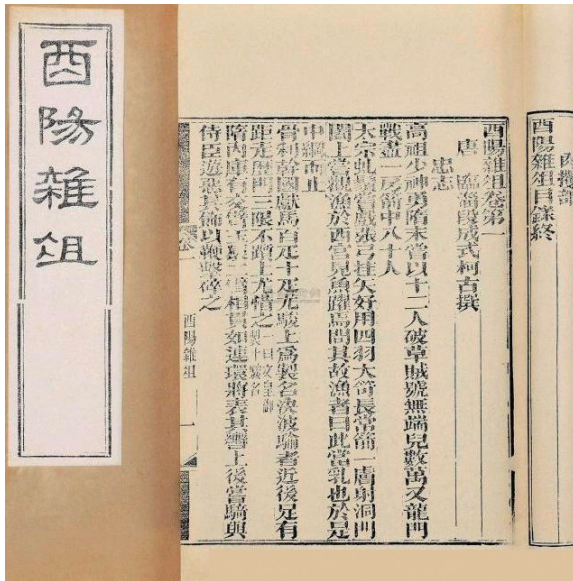 酉陽雜俎
肉攫部
酉陽雜俎目錄終
酉陽雜俎卷第一
唐 臨淄段成式柯古撰
忠志
高祖少神勇隋末嘗以十二人破草賊號無端兒數萬又龍門
戰盡一房箭中八十人
太宗虬鬚嘗戲張弓挂矢好用四羽大笴長常箭一膚射洞門
闔上嘗觀漁於西宮見魚躍焉問其故漁者曰此當乳也於是
中網而止
骨利幹國獻馬百疋十疋尤駿上爲製名決波騟者近後足有
距走歷門三限不躓上尤惜之一曰文皇御製十驥名
隋內庫有交臂玉猿二臂相貫如連環將表其轡上後嘗騎與
侍臣遊惡其飾以鞭擊碎之
酉陽雜俎 一